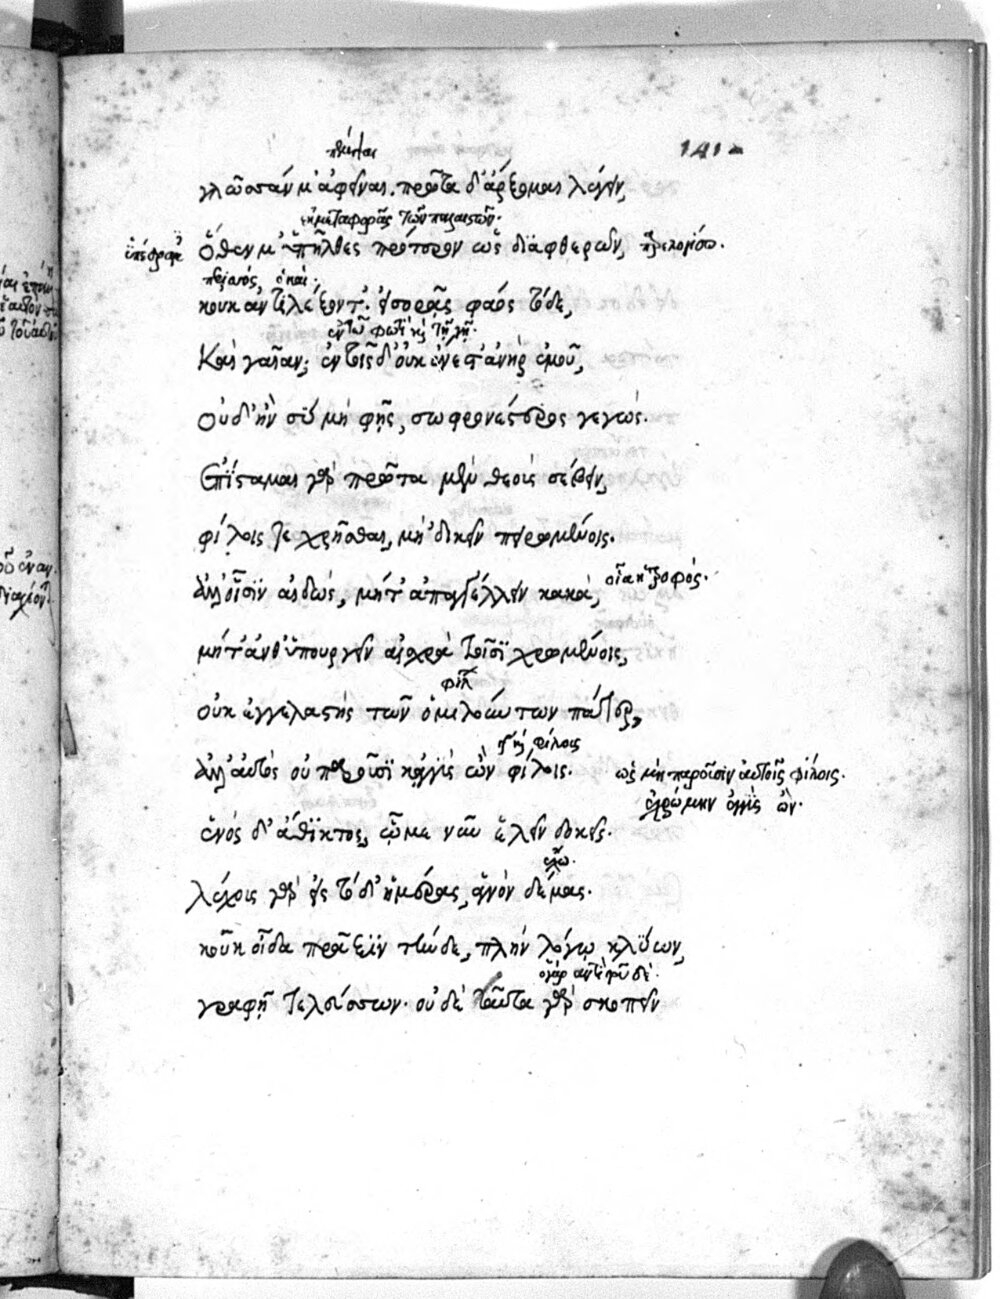 141
γλῶσσάν μ' ἀφεῖναι. πρῶτα δ' ἄρξομαι λέγειν,
ἡ μεταφορὰ ἀπὸ τῶν παλαιστῶν.
ὅθεν μ' ὑπῆλθες πρότερον ὡς διαφθερῶν,
κοὐκ ἀντιλέξοντ'. εἰσορᾷς φάος τόδε,
ἐν τῷ φωτὶ καὶ τῇ γῇ.
Καὶ γαῖαν· ἐν τοῖς δ' οὐκ ἔνεστ' ἀνὴρ ἐμοῦ,
οὐδ' ἢν σὺ μὴ φῇς, σωφρονέστερος γεγώς.
Ἐπίσταμαι γὰρ πρῶτα μὲν θεοὺς σέβειν,
φίλοις τε χρῆσθαι, μὴ ἀδικεῖν πειρωμένοις.
ἀλλ' οἷσιν αἰδώς, μήτ' ἀπαγγέλλειν κακά,
μήτ' ἀνθυπουργεῖν αἰσχρὰ τοῖσι χρωμένοις,
οὐκ ἐγγελαστὴς τῶν ὁμιλούντων πάτερ,
φίλοις
ἀλλ' αὐτὸς οὐ παροῦσι κἀγγὺς ὢν φίλοις. ὡς μὴ παροῦσιν αὐτοῖς φίλοις.
ἐγγὺς ὢν.
ἑνὸς δ' ἄθικτος, ᾧ με νῦν ἑλεῖν δοκεῖς.
λέχους γὰρ εἰς τόδ' ἡμέρας, ἁγνὸν δέμας.
κοὐκ οἶδα πρᾶξιν τήνδε, πλὴν λόγῳ κλύων,
ὁ γὰρ ἀντὶ τοῦ δέ.
γραφῇ τε λεύσσων. οὐδὲ ταῦτα γὰρ σκοπεῖν